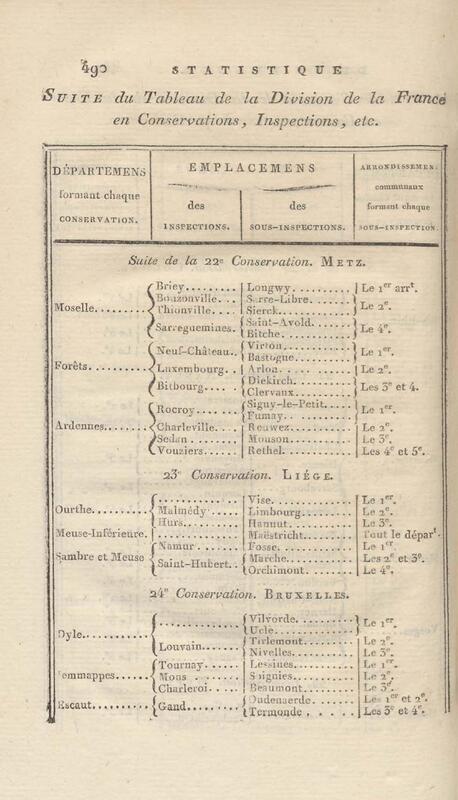 490 STATISTIQUE
SUITE du Tableau de la Division de la France
en Conservations, Inspections, etc.
DÉPARTEMENS formant chaque CONSERVATION.
EMPLACEMENS
des INSPECTIONS.
des SOUS-INSPECTIONS.
ARRONDISSEMEN. communaux formant chaque SOUS-INSPECTION.
Suite de la 22e Conservation. METZ.
Briey.......... Longwy.......... Le 1er arrt.
Bouzonville... Sarre-Libre........
Moselle.......... Thionville.... Sierck............ Le 2e.
Saint-Avold.......
Sarreguemines. Bitche............ Le 4e.
Virton............
Neuf-Château.. Bastogne.......... Le 1er.
Forêts........... Luxembourg... Arlon............. Le 2e.
Diekirch..........
Bitbourg..... Clervaux.......... Les 3e et 4.
Siguy-le-Petit.....
Rocroy....... Fumay............ Le 1er.
Ardennes........ Charleville.... Rouwez........... Le 2e.
Sedan......... Mouson........... Le 3e.
Vouziers...... Rethel............ Les 4e et 5e.
23e Conservation. LIÉGE.
............. Vise.............. Le 1er.
Ourthe........... Malmédy...... Limbourg......... Le 2e.
Hurs.......... Hannut........... Le 3e.
Meuse-Inférieure. ............. Maëstricht........ Tout le départ.
Namur........ Fosse............. Le 1er.
Sambre et Meuse Marche........... Les 2e et 3e.
Saint-Hubert.. Orchimont........ Le 4e.
24e Conservation. BRUXELLES.
Vilvorde..........
............. Ucle.............. Le 1er.
Dyle............. Tirlemont......... Le 2e.
Louvain....... Nivelles........... Le 3e.
Tournay...... Lessines........... Le 1er.
Jemmappes...... Mons ........ Soignies........... Le 2e.
Charleroi..... Beaumont........ Le 3e.
Oudenaerde....... Les 1er et 2e.
Escaut........... Gand......... Termonde . . . . . Les 3e et 4e.